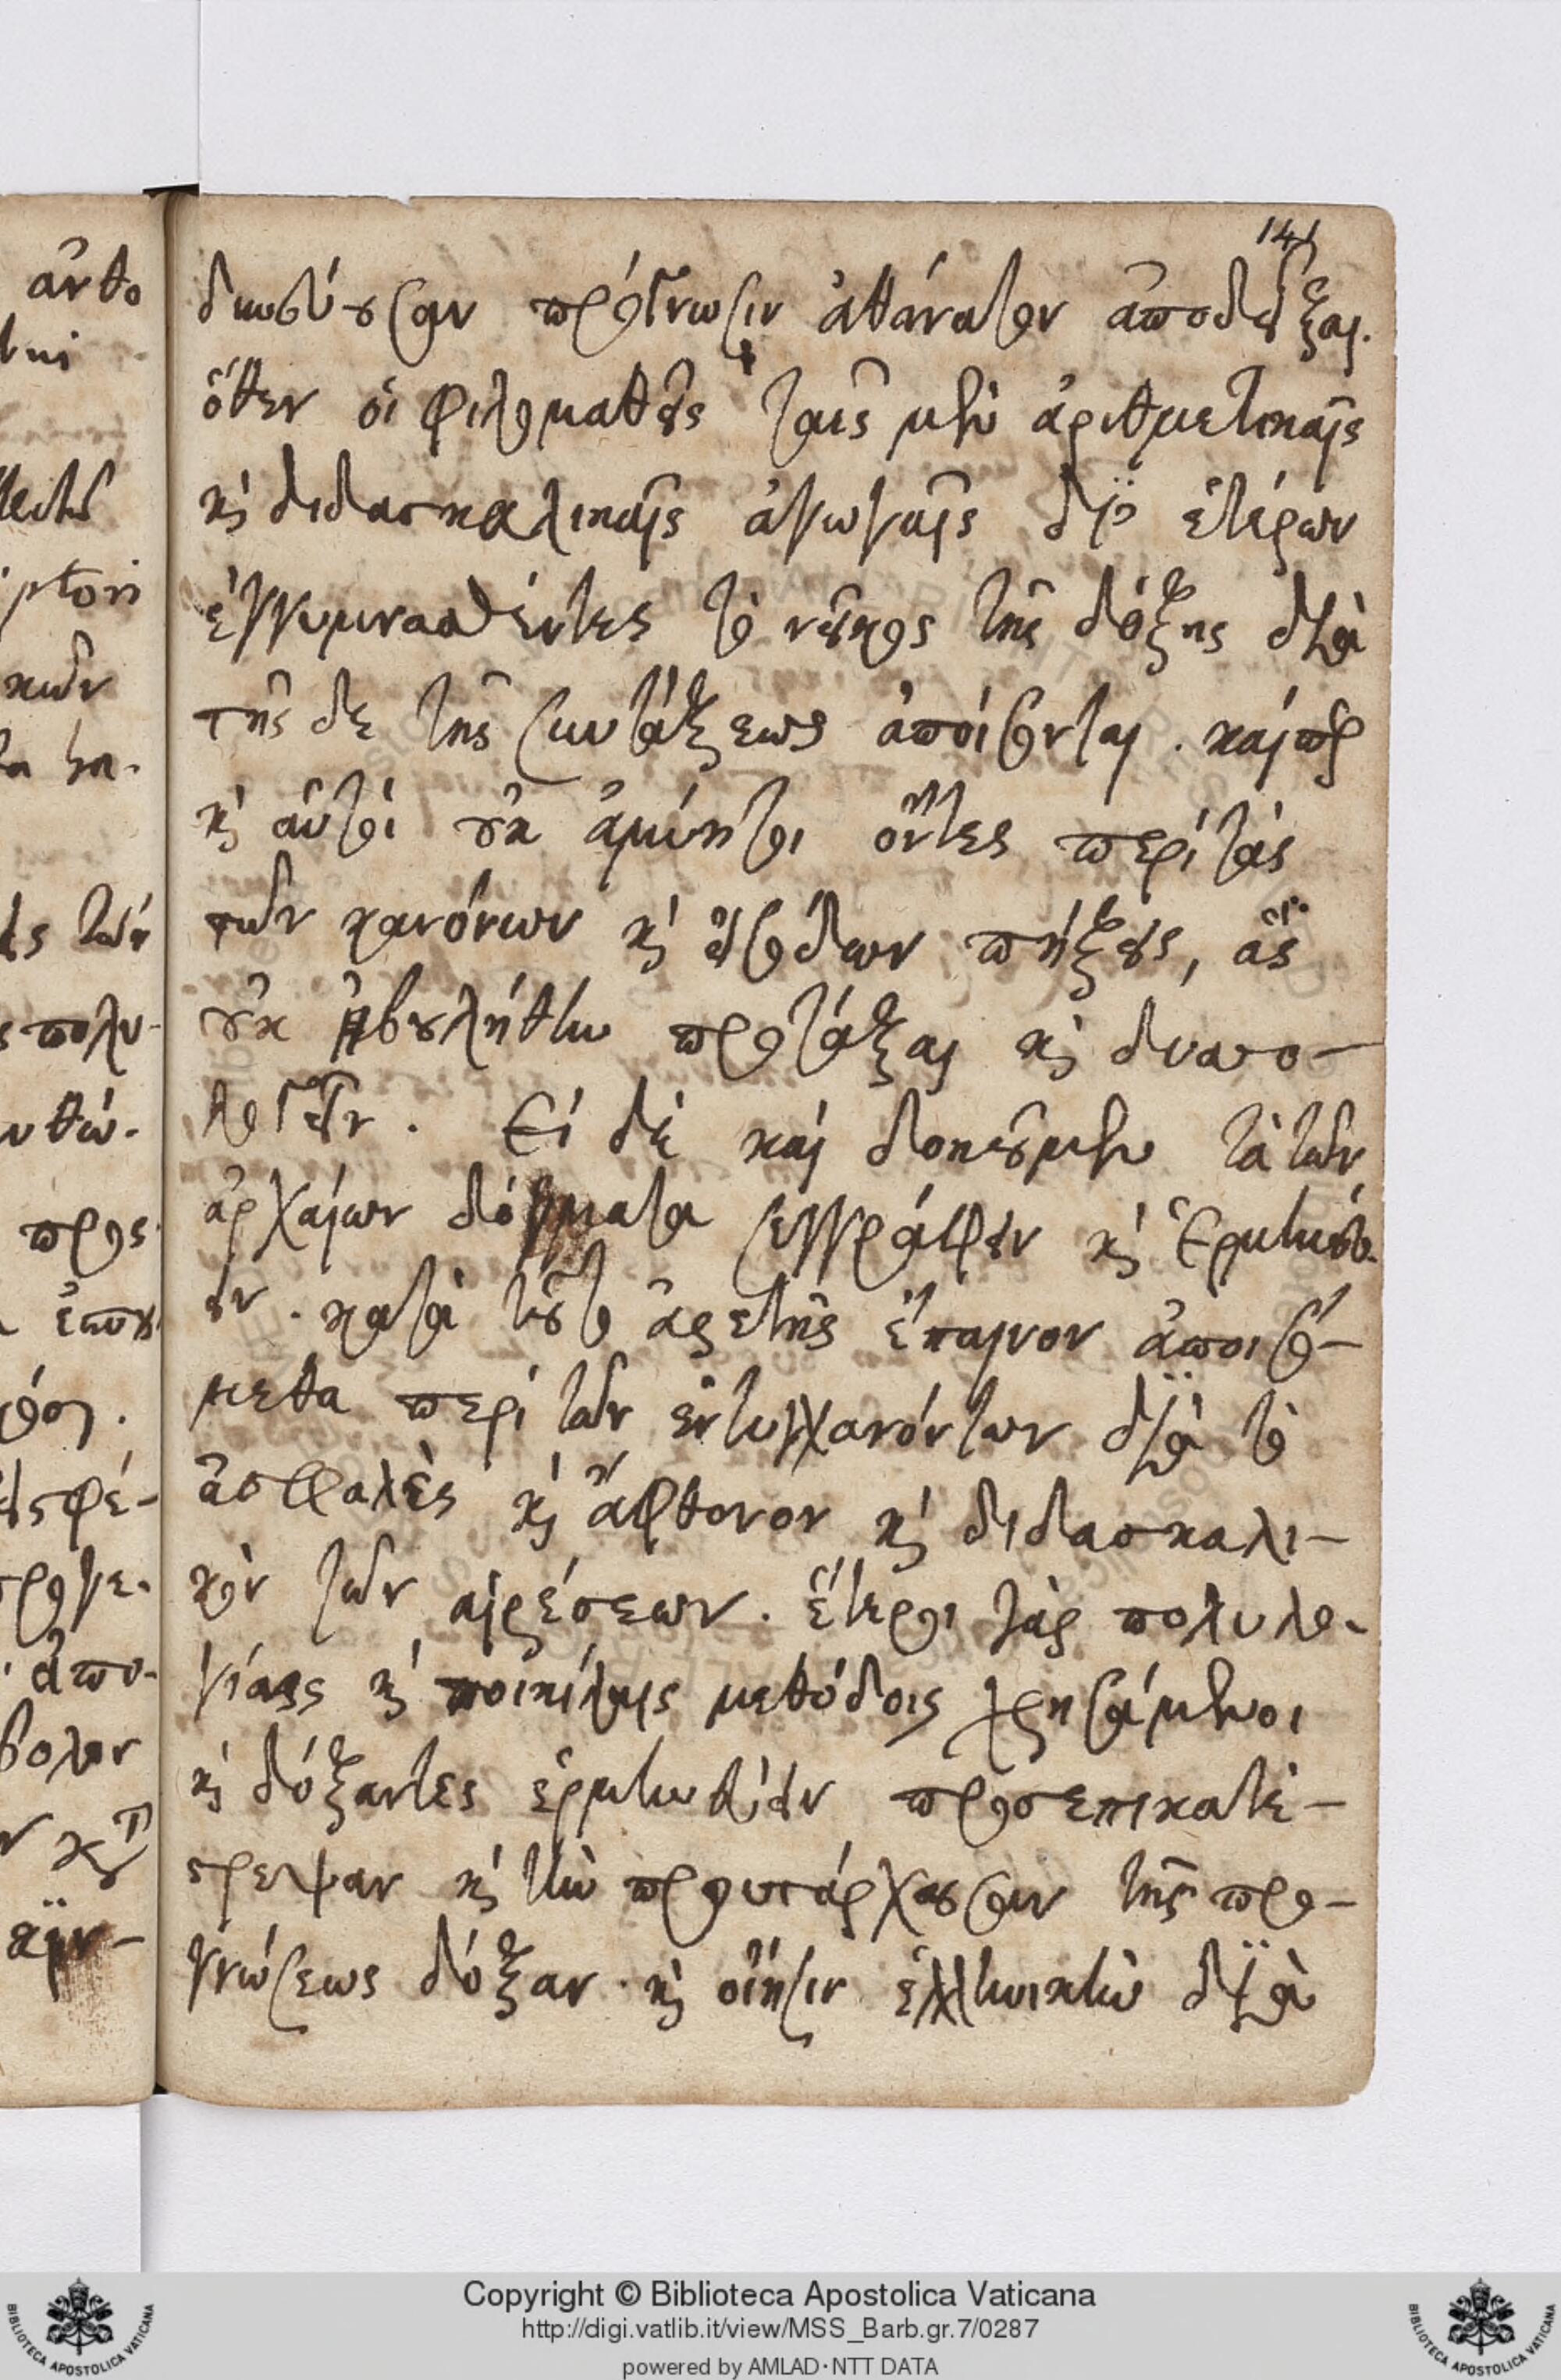 141
δυναστεύουσαν πρόγνωσιν ἀθάνατον ἀποδεῖξαι.
ὅθεν οἱ φιλομαθεῖς ταῖς μὲν ἀριθμετικαῖς
κὶ διδασκαλικαῖς ἀγωγαῖς δι' ἑτέρων
ἐγγυμνασθέντες τὸ νεῖκος τῆς δόξης διὰ
τῆς δε τῆς συντάξεως ἀποίσονται. καίπερ
κὶ αὐτοὶ οὐκ ἀμύητοι ὄντες περὶ τὰς
τῶν κανόνων κὶ εἰσόδων πήξεις, ἃς
οὐκ ἠβουλήθην προτάξαι κὶ δυαπο-
λογεῖν. Εἰ δὲ καὶ δοκοῦμεν τὰ τῶν
ἀρχαίων δόγματα συγγράφειν κὶ ἑρμηνεύ-
ειν. κατὰ τοῦτο ἀρετῆς ἔπαινον ἀποισό-
μεθα περὶ τῶν ἐντυγχανόντων διὰ τὸ
ἀσφαλὲς κὶ ἄφθονον κὶ διδασκαλι-
κὸν τῶν αἱρέσεων. ἕτεροι γὰρ πολυλο-
γίαις κὶ ποικίλαις μεθόδοις χρησάμενοι
κὶ δόξαντες ἑρμηνεύειν προσεπικατέ-
στρεψαν κὶ τὴν προυπάρχουσαν τῆς προ-
γνώσεως δόξαν. κὶ οἴησιν ἑλληνικὴν διὰ
Copyright © Biblioteca Apostolica Vaticana
http://digi.vatlib.it/view/MSS_Barb.gr.7/0287
powered by AMLAD·NTT DATA
BIBLIOTECA APOSTOLICA VATICANA
BIBLIOTECA APOSTOLICA VATICANA